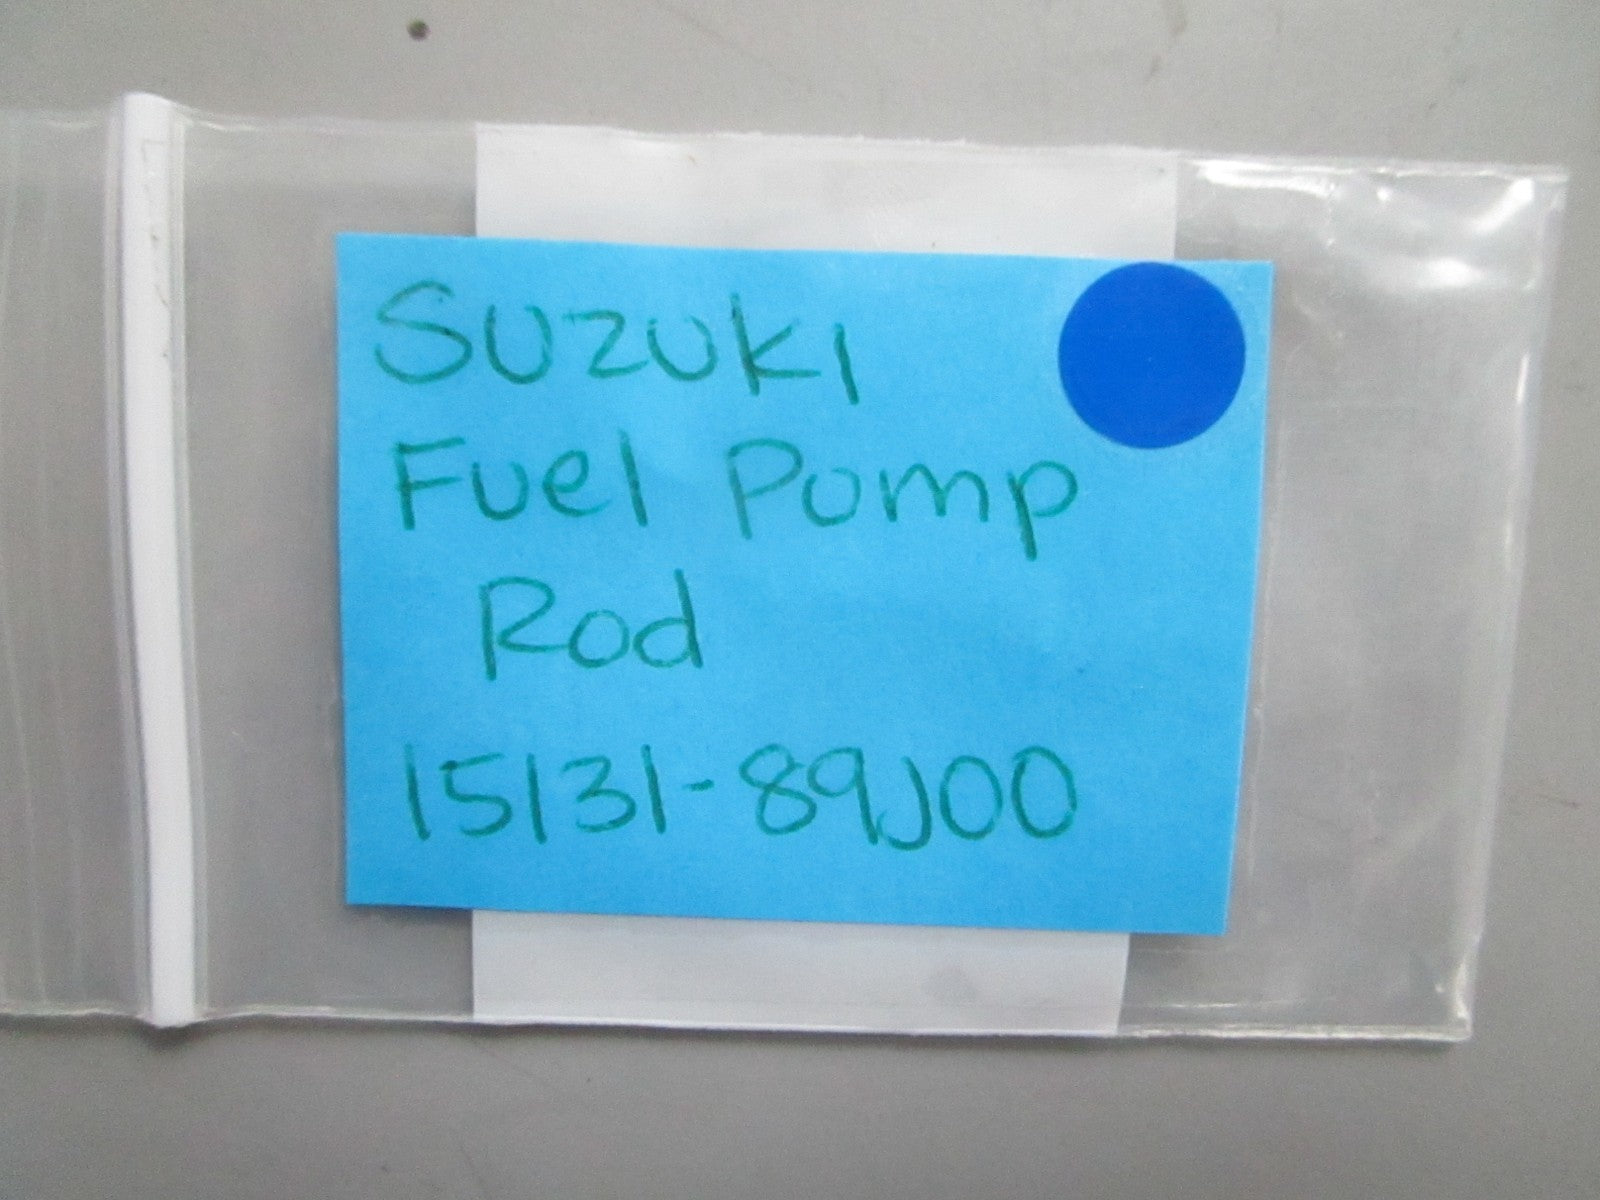 Suzuki
Fuel Pump
Rod
15131-89J00